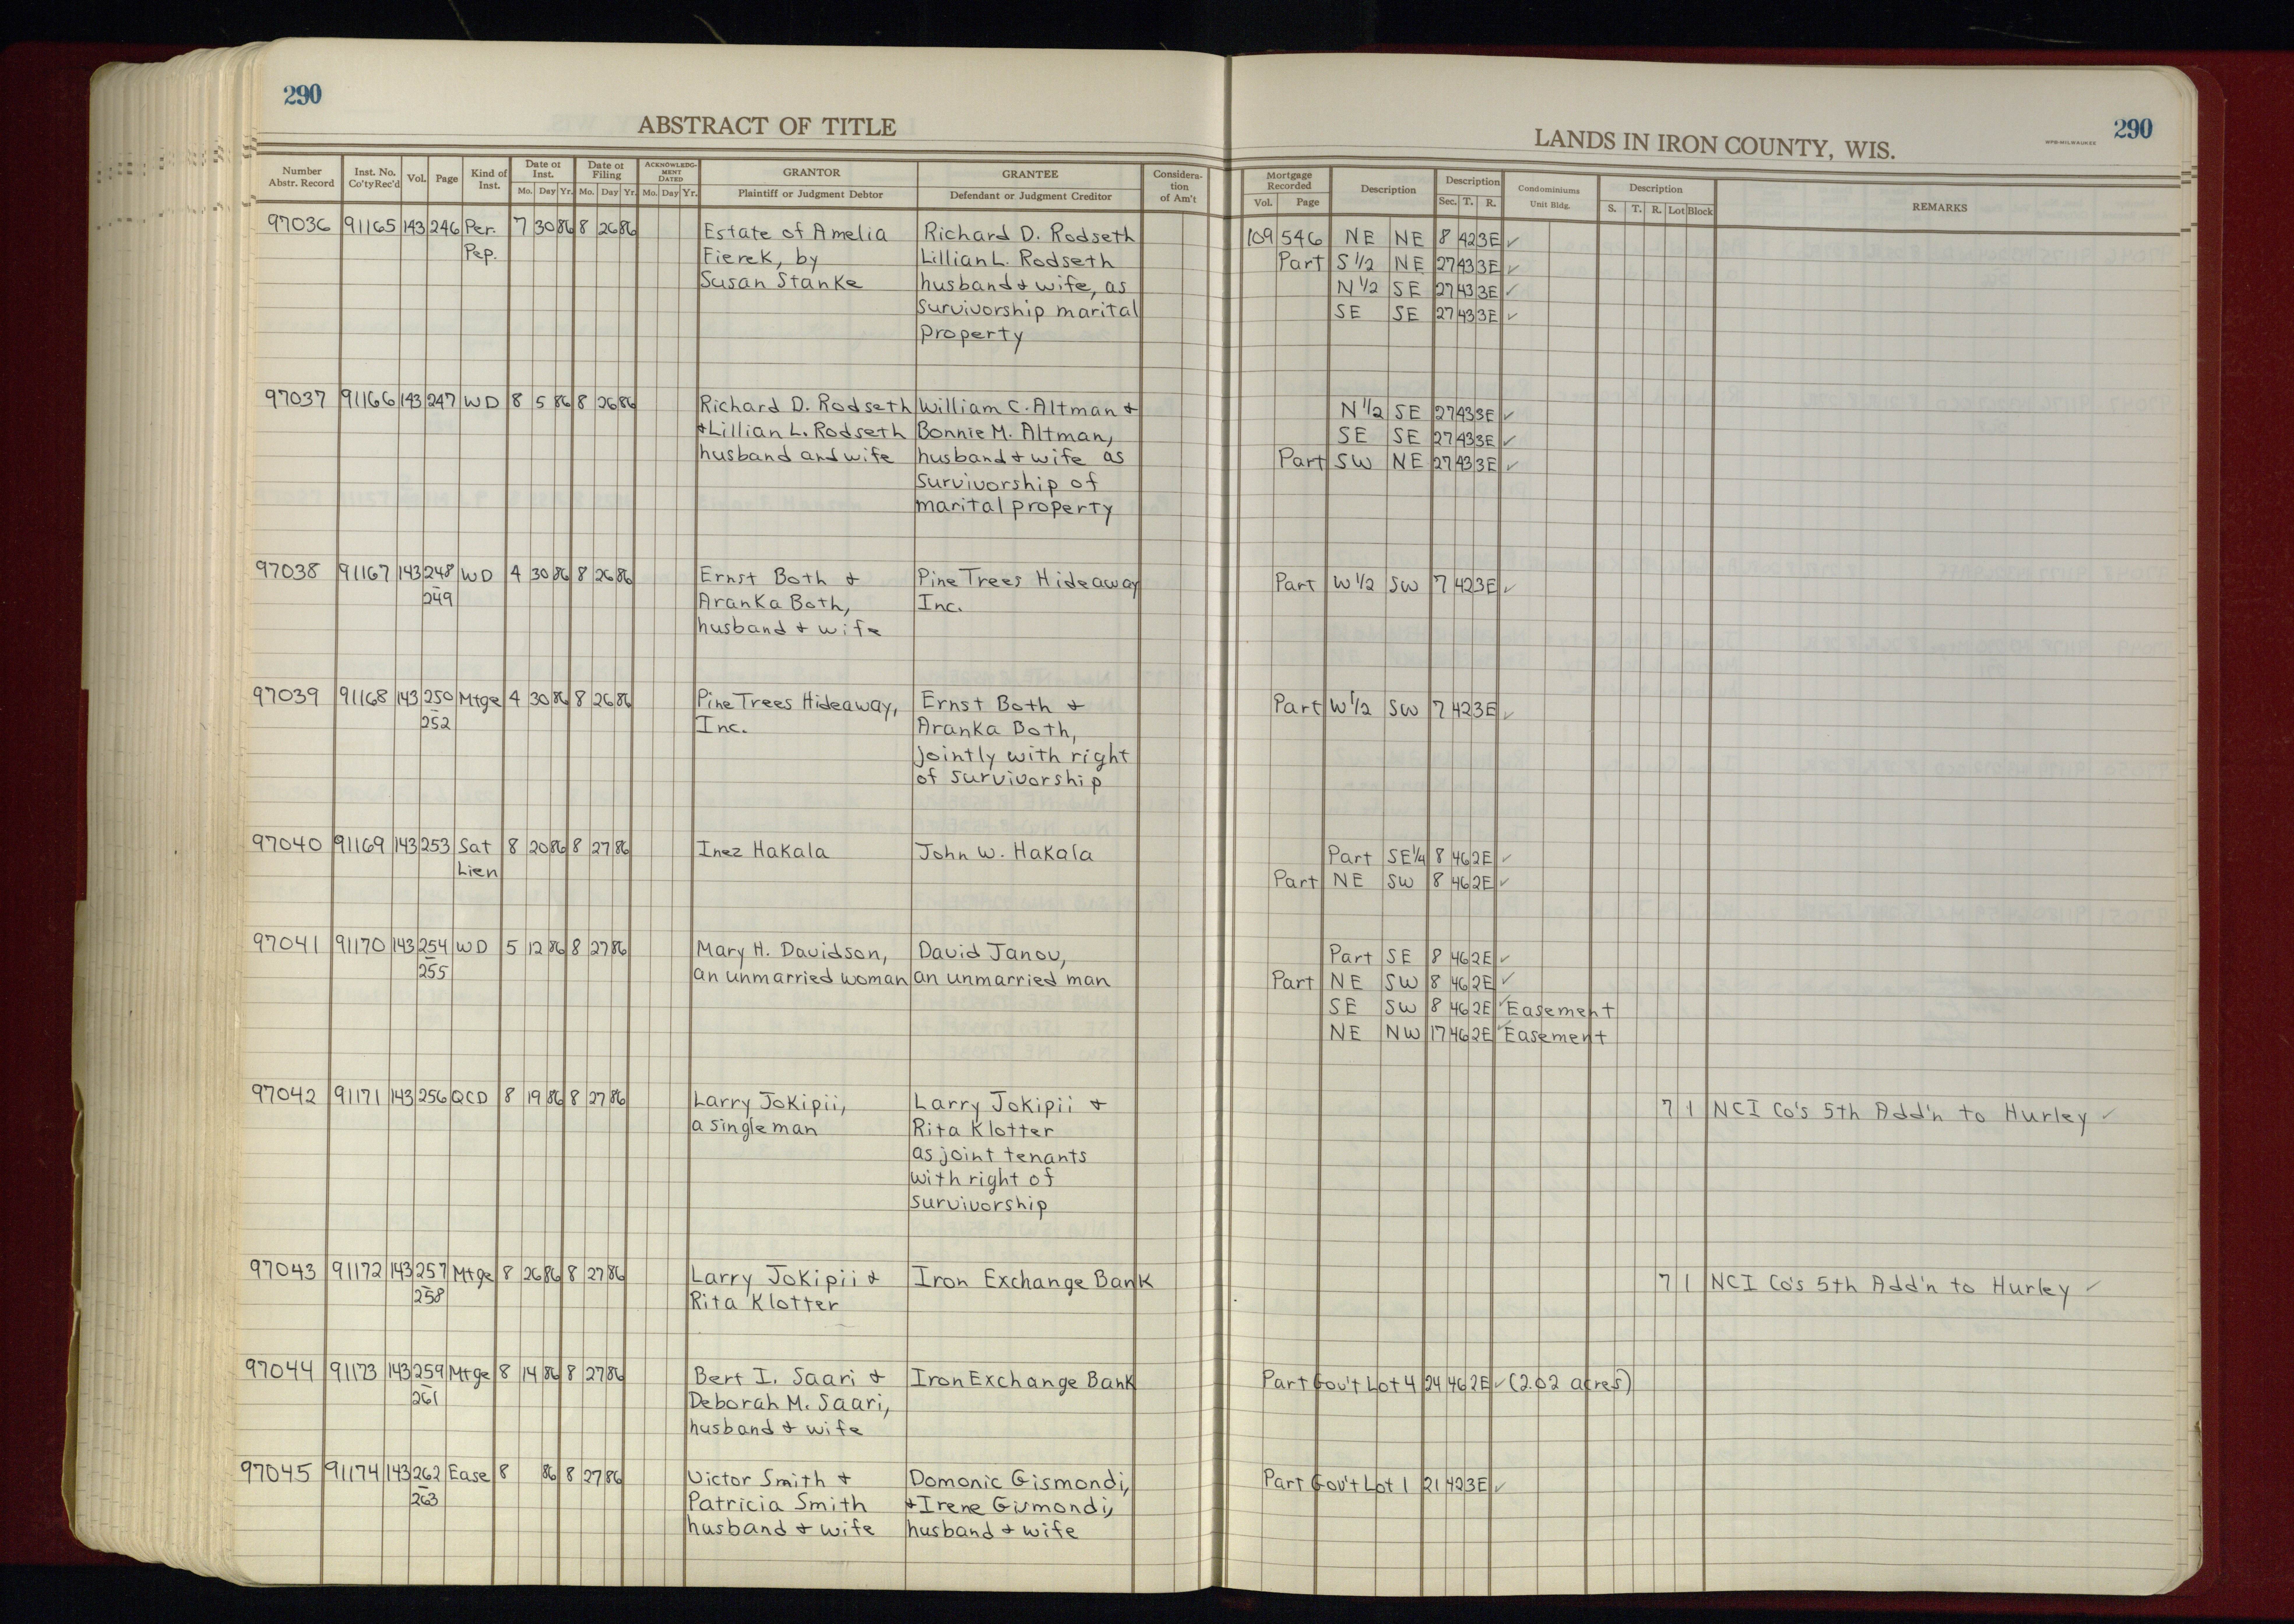 290
ABSTRACT OF TITLE
Number Abstr. Record | Inst. No. Co'ty Rec'd | Vol. | Page | Kind of Inst. | Date of Inst. Mo. Day Yr. | Date of Filing Mo. Day Yr. | ACKNOWLEDGMENT DATED Mo. Day Yr. | GRANTOR Plaintiff or Judgment Debtor | GRANTEE Defendant or Judgment Creditor | Consideration of Am't
97036 91165 143 246 Per. 7 30 86 8 26 86 Estate of Amelia Richard D. Rodseth
Pep. Fierek, by Lillian L. Rodseth
Susan Stanke husband & wife, as
survivorship marital
property
97037 91166 143 247 WD 8 5 86 8 26 86 Richard D. Rodseth William C. Altman &
& Lillian L. Rodseth Bonnie M. Altman,
husband and wife husband & wife as
survivorship of
marital property
97038 91167 143 248 WD 4 30 86 8 26 86 Ernst Both & Pine Trees Hideaway
249 Aranka Both, Inc.
husband & wife
97039 91168 143 250 Mtge 4 30 86 8 26 86 Pine Trees Hideaway, Ernst Both &
252 Inc. Aranka Both,
jointly with right
of survivorship
97040 91169 143 253 Sat 8 20 86 8 27 86 Inez Hakala John W. Hakala
Lien
97041 91170 143 254 WD 5 12 86 8 27 86 Mary H. Davidson, David Janov,
255 an unmarried woman an unmarried man
97042 91171 143 256 QCD 8 19 86 8 27 86 Larry Jokipii, Larry Jokipii &
a single man Rita Klotter
as joint tenants
with right of
survivorship
97043 91172 143 257 Mtge 8 26 86 8 27 86 Larry Jokipii & Iron Exchange Bank
258 Rita Klotter
97044 91173 143 259 Mtge 8 14 86 8 27 86 Bert I. Saari & Iron Exchange Bank
261 Deborah M. Saari,
husband & wife
97045 91174 143 262 Ease 8 86 8 27 86 Victor Smith & Domonic Gismondi,
263 Patricia Smith & Irene Gismondi,
husband & wife husband & wife
290
LANDS IN IRON COUNTY, WIS.
WPB-MILWAUKEE
Mortgage Recorded Vol. Page | Description | Description Sec. T. R. | Condominiums Unit Bldg. | Description S. T. R. Lot Block | REMARKS
109 546 NE NE 8 42 3E ✓
Part S 1/2 NE 27 43 3E ✓
N 1/2 SE 27 43 3E ✓
SE SE 27 43 3E ✓
N 1/2 SE 27 43 3E ✓
SE SE 27 43 3E ✓
Part SW NE 27 43 3E ✓
Part W 1/2 SW 7 42 3E ✓
Part W 1/2 SW 7 42 3E ✓
Part SE 1/4 8 46 2E ✓
Part NE SW 8 46 2E ✓
Part SE 8 46 2E ✓
Part NE SW 8 46 2E ✓
SE SW 8 46 2E ✓ Easement
NE NW 17 46 2E ✓ Easement
7 1 NCI Co's 5th Add'n to Hurley ✓
7 1 NCI Co's 5th Add'n to Hurley ✓
Part Gov't Lot 4 24 46 2E ✓ (2.02 acres)
Part Gov't Lot 1 21 42 3E ✓